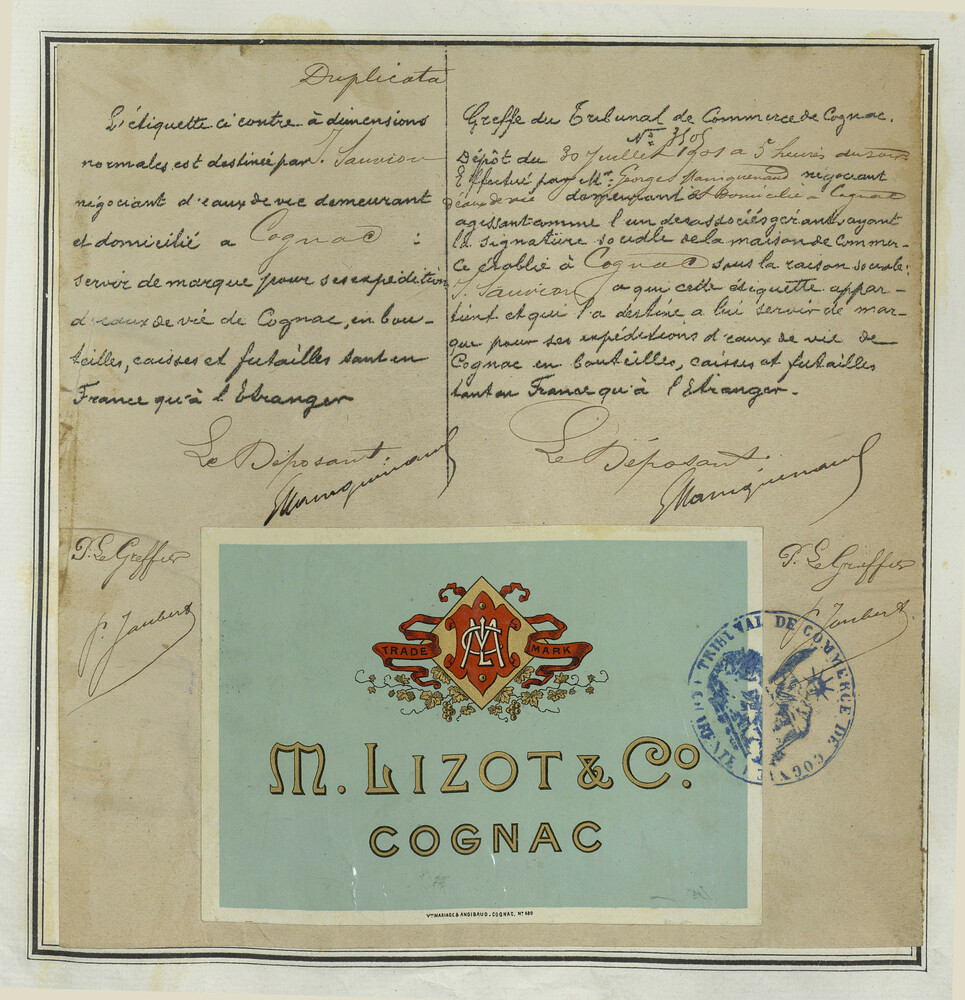 Duplicata
L'étiquette ci contre à dimensions
normales est destinée par J. Sauvion
négociant d'eaux de vie demeurant
et domicilié a Cognac :
servir de marque pour ses expédition
d'eaux de vie de Cognac, en bou-
teilles, caisses et futailles tant en
France qu'à l'Etranger
Le Déposant
P. Le Greffier
P. Jaubert
Greffe du Tribunal de Commerce de Cognac.
No 3505
Dépôt du 30 Juillet 1901 a 5 heures du soir
Effectué par Mr. Georges négociant
d'eaux de vie demeurant et Domicilié a Cognac
agissant comme l'un des associés gérants, ayant
la signature sociale de la maison de Commer-
ce établie à Cognac sous la raison sociale:
J. Sauvion a qui cette étiquette appar-
tient et qui l'a destiné a lui servir de mar-
que pour ses expéditions d'eaux de vie de
Cognac en bouteilles, caisses et futailles
tant en France qu'à l'Etranger.
Le Déposant.
P. Le Greffier
P. Jaubert
TRADE MARK
M. LIZOT & Co.
COGNAC
Vve MARIAGE & ANGIBAUD. COGNAC. No 489
TRIBUNAL DE COMMERCE DE COGNAC